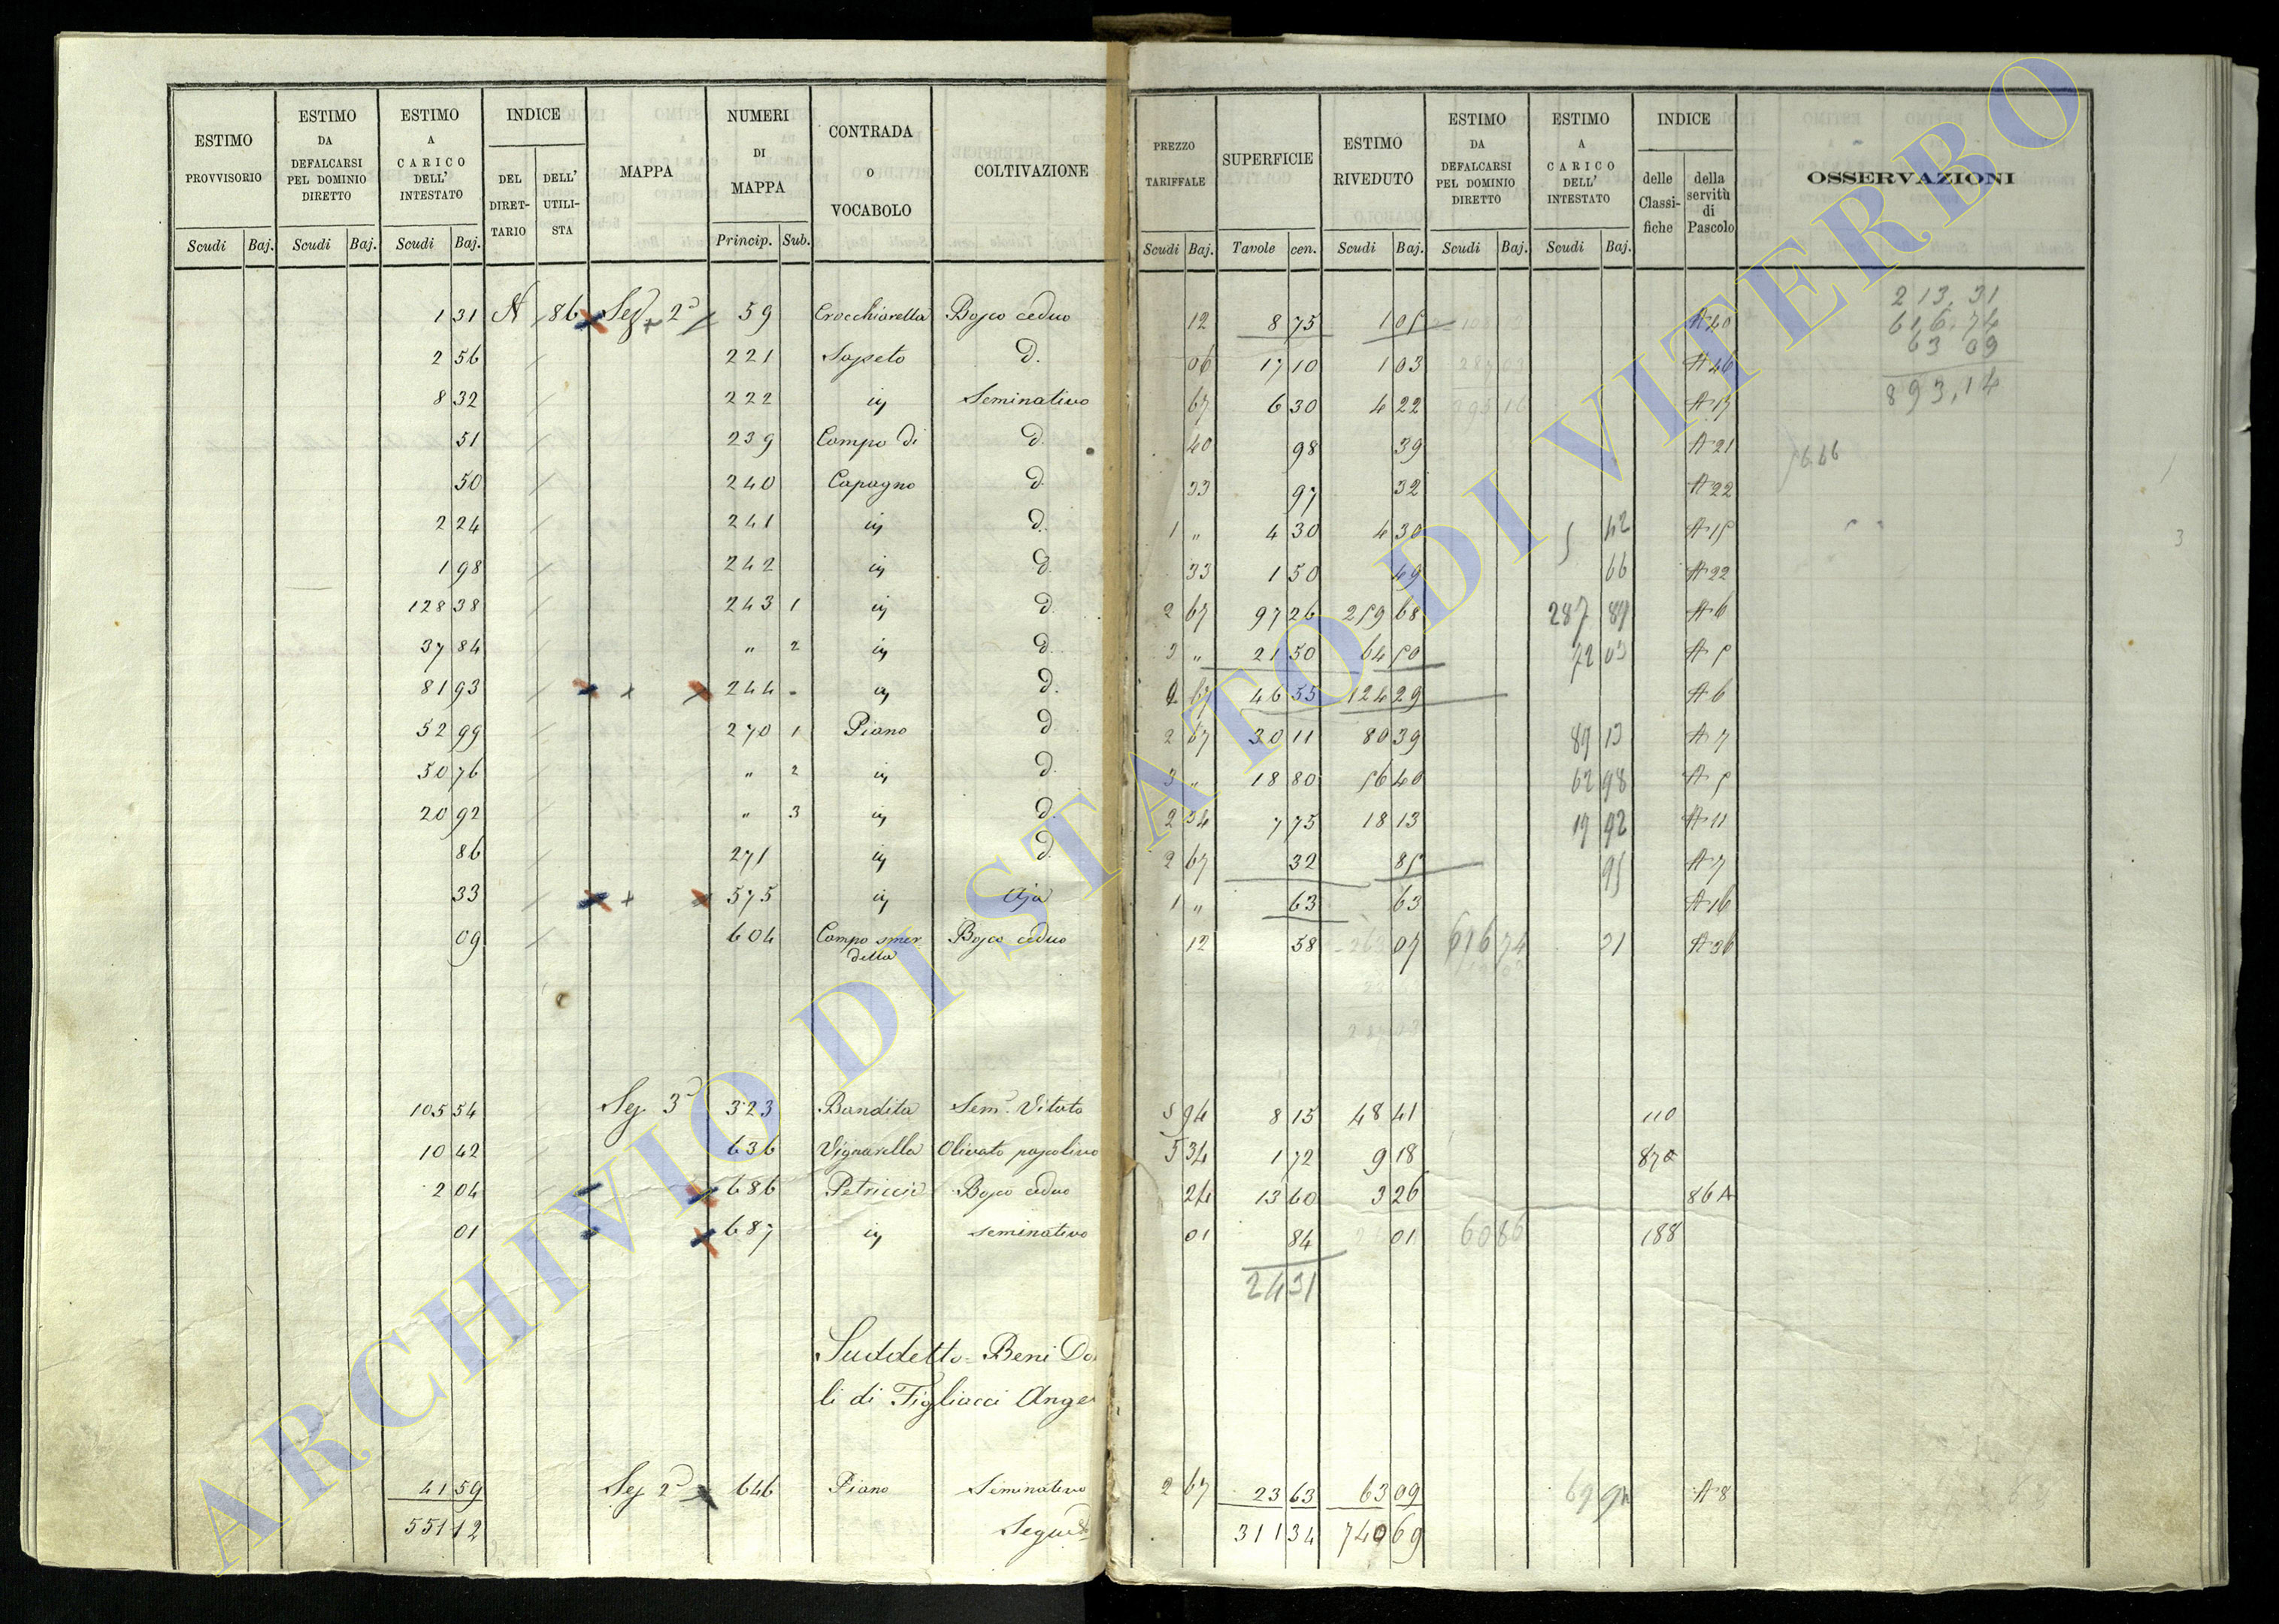 ESTIMO PROVVISORIO ESTIMO DA DEFALCARSI PEL DOMINIO DIRETTO ESTIMO A CARICO DELL' INTESTATO INDICE DEL DIRETTARIO DELL' UTILISTA MAPPA NUMERI DI MAPPA CONTRADA O VOCABOLO COLTIVAZIONE
Scudi Baj. Scudi Baj. Scudi Baj. Princip. Sub.
PREZZO TARIFFALE SUPERFICIE ESTIMO RIVEDUTO ESTIMO DA DEFALCARSI PEL DOMINIO DIRETTO ESTIMO A CARICO DELL' INTESTATO INDICE delle Classifiche della servitù di Pascolo OSSERVAZIONI
Scudi Baj. Tavole cen. Scudi Baj. Scudi Baj. Scudi Baj.
213,31
616,74
63 09
893,14
1 31 A 86 Sez 2ª 59 Crocchiarella Bosco ceduo 12 8 75 1 05 A 40
2 56 221 Sapeto d. 06 17 10 1 03 A 46
8 32 222 in Seminativo 67 6 30 4 22 A 17
51 239 Campo di d. 40 98 39 A 21
50 240 Capagno d. 33 97 32 A 22
2 24 241 in d. 1 „ 4 30 4 30 5 42 A 15
1 98 242 in d. 33 1 50 49 66 A 22
128 38 243 1 in d. 2 67 97 26 259 68 287 89 A 6
37 84 „ 2 in d. 3 „ 21 50 64 50 72 03 A 5
81 93 244 in d. 2 67 46 55 124 29 A 6
52 99 270 1 Piano d. 2 67 30 11 80 39 89 13 A 7
50 76 „ 2 in d. 3 „ 18 80 56 40 62 98 A 5
20 92 „ 3 in d. 2 34 7 75 18 13 19 92 A 11
86 271 in d. 2 67 32 85 95 A 7
33 575 in Aja 1 „ 63 63 A 16
09 604 Campo smer Bosco ceduo 12 58 07 616 74 21 A 36
della
105 54 Sez 3ª 323 Bandita Sem. Vitato 5 94 8 15 48 41 110
10 42 636 Vignarella Olivato pascolivo 5 34 1 72 9 18 870
2 04 686 Petriccio Bosco ceduo 24 13 60 3 26 86 A
01 687 in seminativo 01 84 01 60 86 188
24 31
Suddetto = Beni Do
li di Figliacci Ange
41 59 Sez 2ª 646 Piano Seminativo 2 67 23 63 63 09 69 A 8
551 12 Segue 311 34 740 69
ARCHIVIO DI STATO DI VITERBO